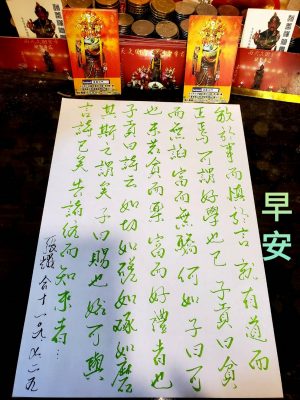 敏於事而慎於言 就有道而
正焉 可謂好學也已 子貢曰 貧
而無諂 富而無驕 何如 子曰 可
也 未若貧而樂 富而好禮者也
子貢曰 詩云 如切如磋 如琢如磨
其斯之謂與 子曰 賜也 始可與
言詩已矣 告諸往而知來者…
合十
早安